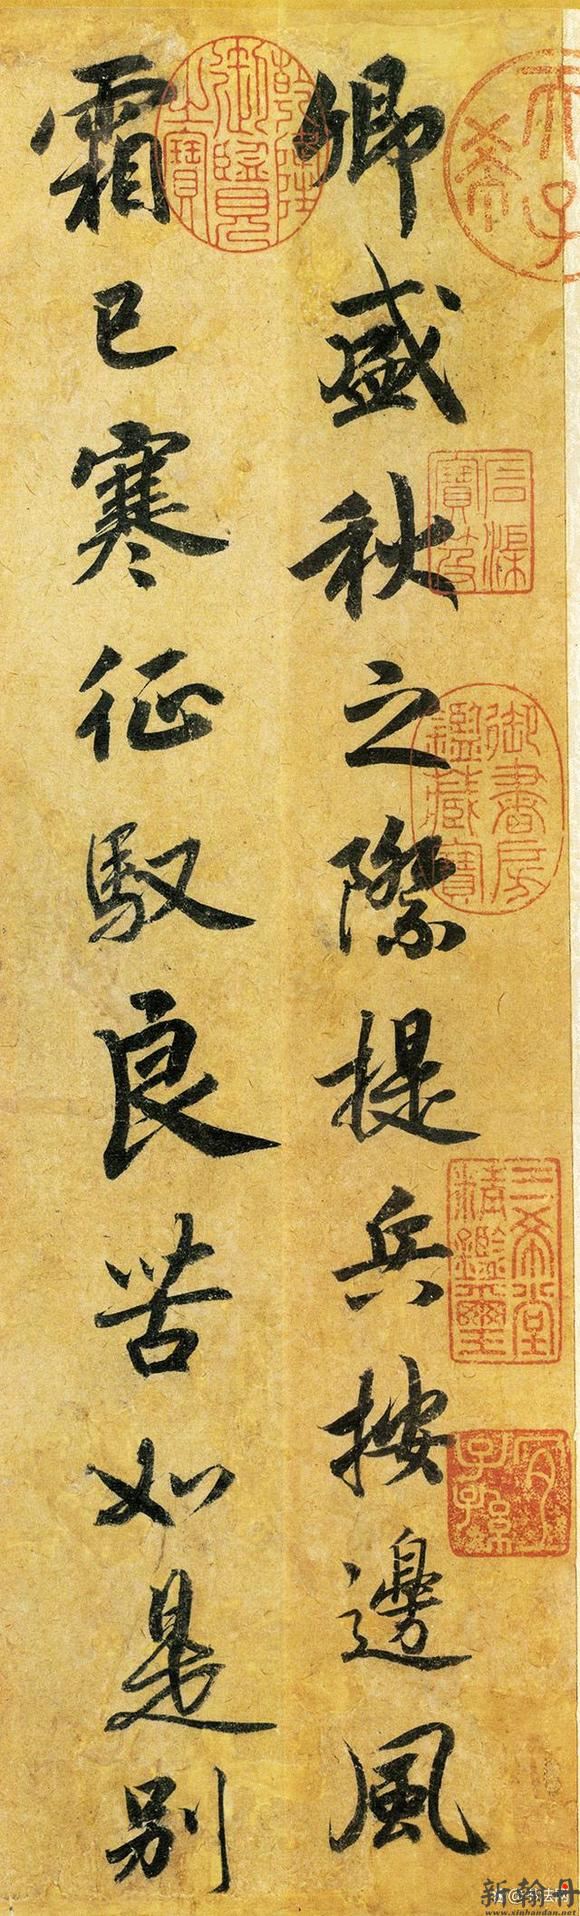 卿盛秋之際提兵按邊風
霜已寒征馭良苦如是別
乾隆御覽之寶
天子
古希
石渠寶笈
御書房鑑藏寶
三希堂精鑑璽
宜子孫
新翰丹
www.xinhandan.net